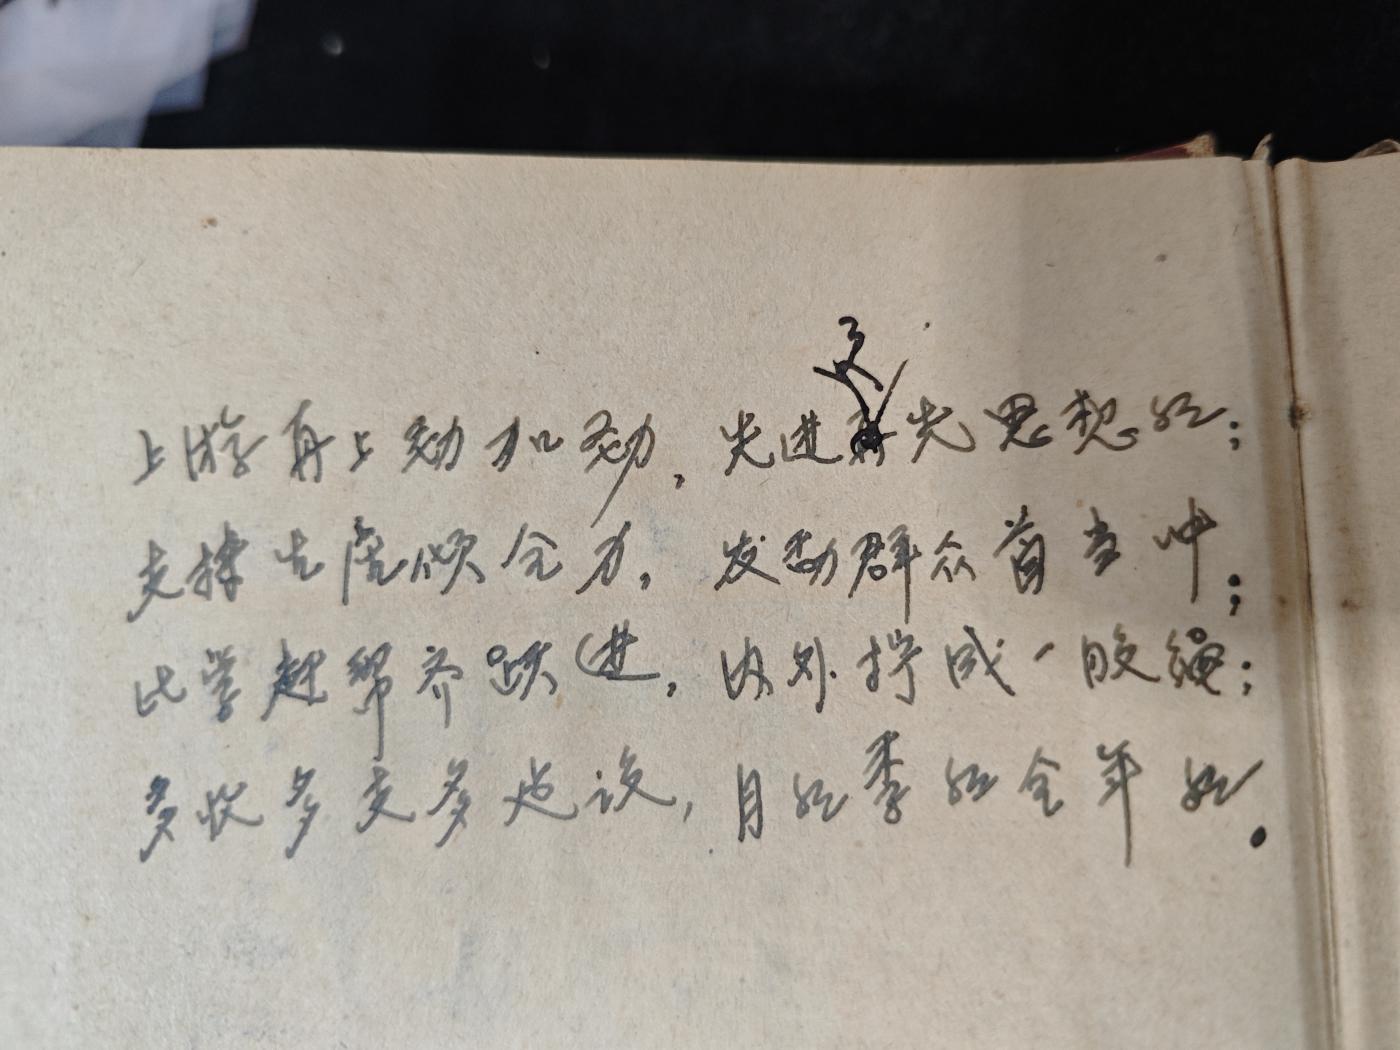 上游再上劲加劲,先进更先思想红;
支援生产须全力,发动群众首当冲;
比学赶帮齐跃进,内外拧成一股绳;
多收多支多建设,月红季红全年红.